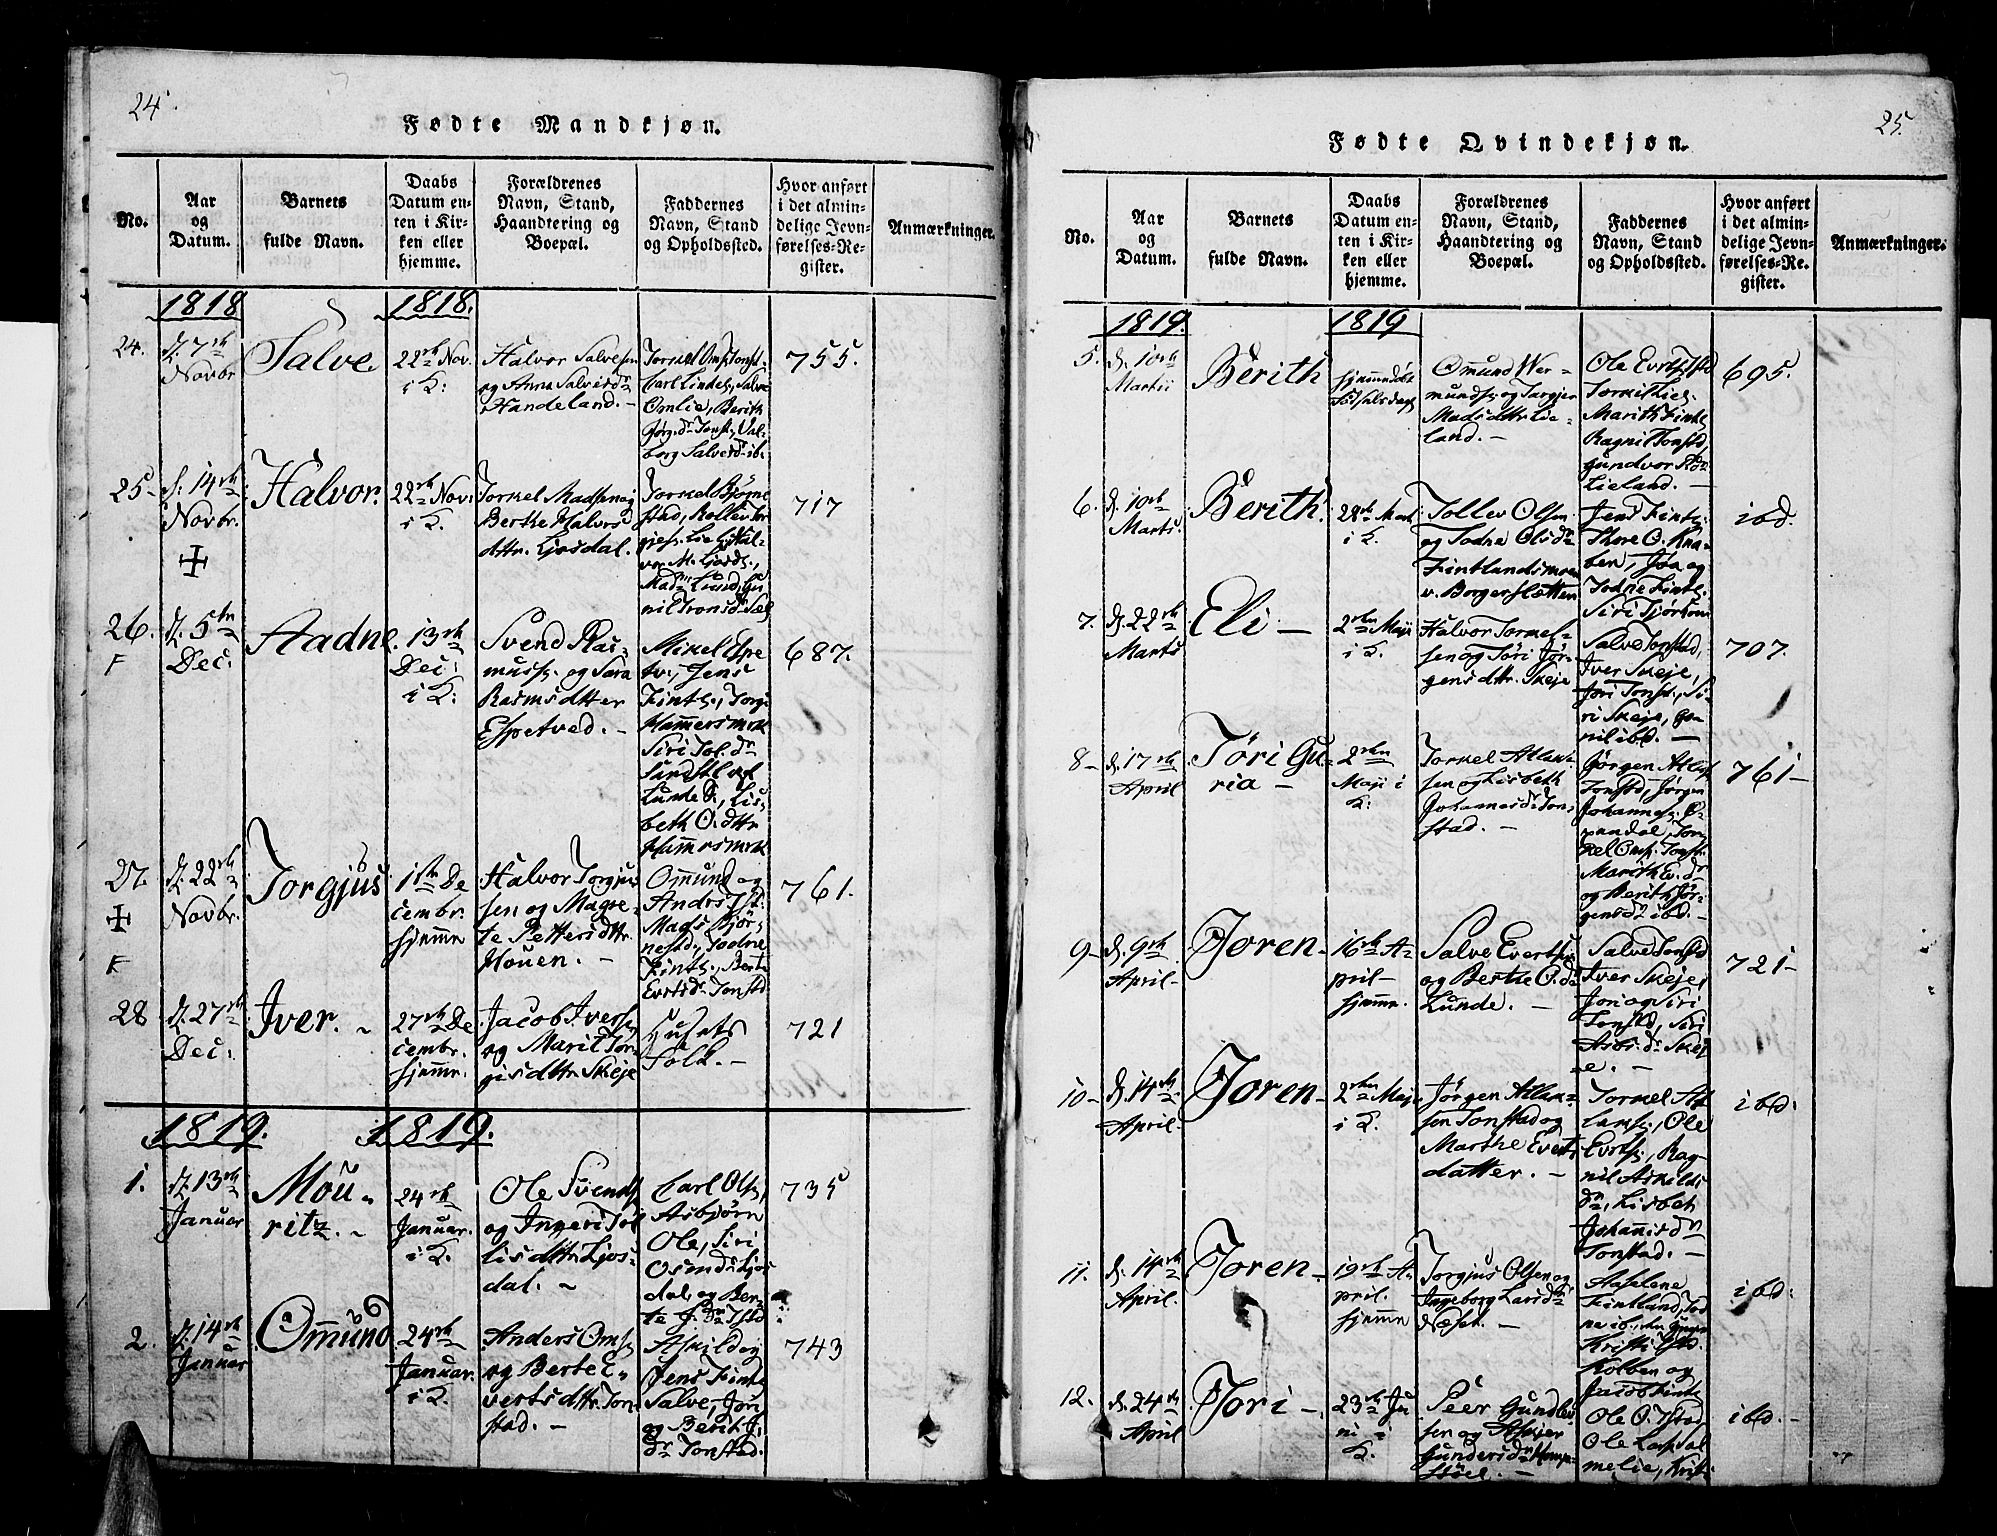 24.
Fødte Mandkjøn.
No.
Aar
og
Datum.
Barnets
fulde Navn.
Daabs
Datum en-
ten i Kir-
ken eller
hjemme.
Forældrenes
Navn, Stand,
Haandtering og
Boepæl.
Faddernes
Navn, Stand
og Opholdssted.
Hvor anført
i det almin-
delige Jevn-
førelses-Re-
gister.
Anmærkninger.
1818
1818.
24.
d. 7de
Novbr
Salve
22de Nov.
i K:
Halvor Salvesen
og Anna Salvesdr
Handeland. -
Torkel Oms. Tonst.
Carl Lindel., Salve
Omlie, Berith
Jørg. dr Tonst., Val-
borg Salvesdr ib:
755.
25-
d: 14de
Novbr.
Halvor.
22de Nov:
i K.
Torkel Madsen og
Berthe Halvors
dttr. Ljosdal.
Torkel Bjørne
stad, Rollev Tor
gjes: Liel., Hal-
vor M. Ljosd.,
717
26.
F
d. 5te
Dec:
Aadne.
13de
Dec:
i K:
Svend Ras-
muss. og Sara
Rasmusdtter
Espetved. -
Mikel Espe
tv., Jens
Fintl., Torg.
Hammersmrk
Siri Tol. dr
Lunde S., Lis-
beth O. dttr
Hammersmrk
687.
27.
F
d. 22de
Novbr.
Torgjus
1ste De
cembr.
hjemme
Halvor Torgjus
sen og Magre-
te Pettersdttr.
Houen. -
Omund og
Anders Tst.
Mads Bjør-
nestd., Todne
Fintl., Berte
Evertsdr Tonstd
761.
28
d. 27de
Dec:
Iver. -
27de De
cembr.
hjemme.
Jacob Ivers.
og Marit Tor-
gisdttr. Skeje
Husets
Folk. -
721
1819.
1819.
1.
d. 13de
Januar
Mou-
ritz. -
24de
Januar.
i K.
Ole Svends.
og Ingeri Tol
lisdttr. Ljos-
dal. -
Carl Ols.,
Asbjørn
Ole, Siri
Osmds. Ljos
dal, og Ber-
735
2.
d. 14de
Januar
Omund
24de
Januar.
i K.
Anders Oms.
og Berte E-
vertsdttr. Ton-
stad. -
Askild og
Jens Fintl.
Salve, Jori
og Berit J.
dr Tonstad.
743
25.
Fødte Qvindekjøn.
No.
Aar
og
Datum.
Barnets
fulde Navn.
Daabs
Datum en-
ten i Kir-
ken eller
hjemme.
Forældrenes
Navn, Stand,
Haandtering og
Boepæl.
Faddernes
Navn, Stand
og Opholdssted.
Hvor anført
i det almin-
delige Jevn-
førelses-Re-
gister.
Anmærkninger.
1819.
1819
5.
d. 10de
Martii
Berith
hjemmedøbt
Fødselsdagen
Omund Wer-
munds. og Torgjer
Madsdttr. Lie-
land. -
Ole Everts. Tstd
Torkel Liel.
Marith Fintl.
Ragnil Tonstd,
Gundvor
Lieland. -
695.
6.
d. 10de
Marts.
Berith.
28de Mart.
i K.
Tollev Olsen
og Todne Olsdr
Fintlandsmoen
v. Borgerslotten
Jens Fintl.
Thore O. Kna-
ben, Joa og
Todne Fintl.
Siri Tjørhom
ibd.
7.
d. 22de
Marts
Eli -
2den Maji
i K.
Halvor Torkel-
sen og Tori Jør-
gensdttr. Skeje
Salve Tonstad,
Iver Skeje,
Jori Tonst., Si-
ri Skeje, Go-
nil ibd. -
707.
8-
d. 17de
April
Tori Gu-
ria -
2den
Maji i
K:
Torkel Atlak-
sen og Lisbeth
Johannesdr Ton-
stad. -
Jørgen Atlaks.
Tonstd, Jørgen
Johannes. O-
pendal, Tor-
kel Oms. Tonst.
Marith Ev. dr
og Berith Jør-
gensdr ibd. -
761-
9-
d. 9de
April-
Joren-
16de A-
pril-
hjemme.
Salve Evertsen
og Berthe O. dr
Lunde. -
Salve Tonstd
Iver Skeje,
Jori og Siri
Tonstd, Siri
Asb: dr Skej-
e. -
721-
10-
d. 14de
April.
Joren-
2den Maji
i K.
Jørgen Atlak-
sen Tonstad og
Marthe Everts
datter. -
Torkel At-
laks., Ole
Everts., Rag-
nil Askilds
dr, Lisbet
Johannisdr
Tonstad. -
ibd:
11.
d. 14de
April.
Joren-
19de A-
pril.
hjemme
Torgjus Olsen og
Ingeborg Larsdr
Næset. -
Aaselene
Fintland, Tod
Kolben og
Jacob Fintl.
ibd:
12.
d. 24de
April
Jori -
23de Ju
ni i
K.
Peer Gundlev
sen og Asgjer
Gundersdr Homp-
støel. -
Ole O. Tstad
Ole Lars. Sal
melie, Krist.
ibd. -